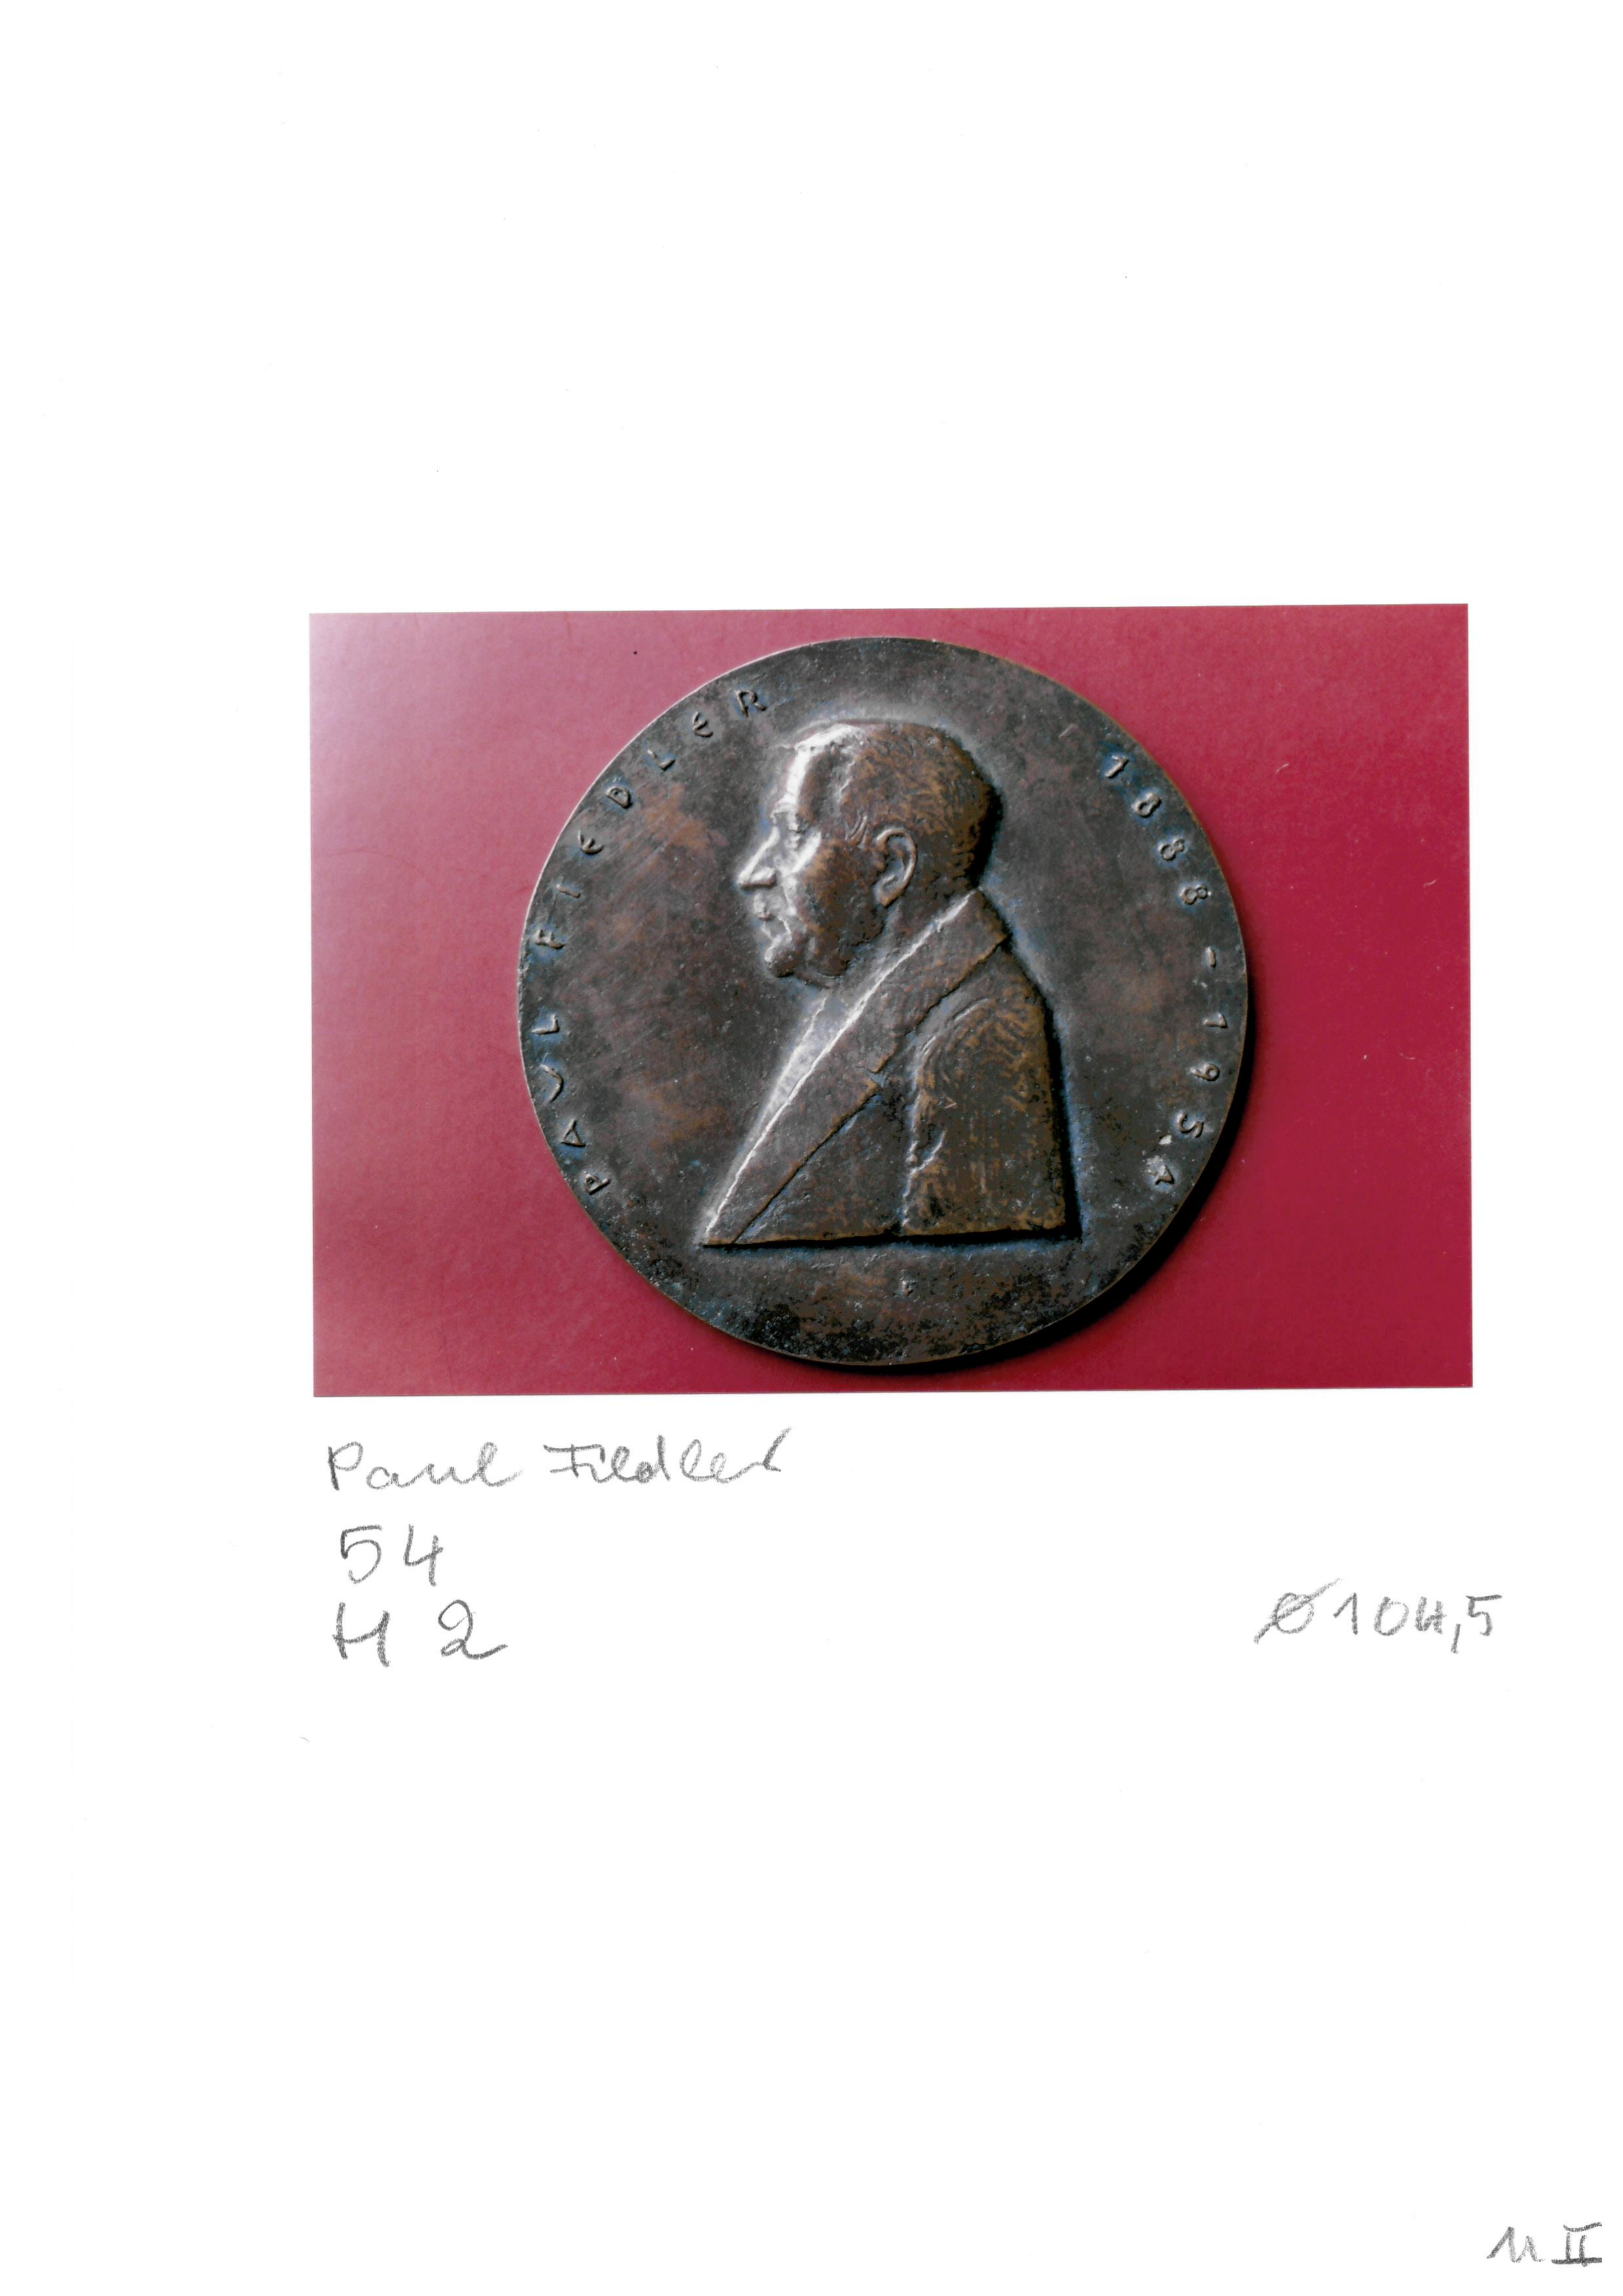 PAUL FIEDLER 1888-1951
F
Paul Fiedler
54
H 2
Ø 104,5
M II